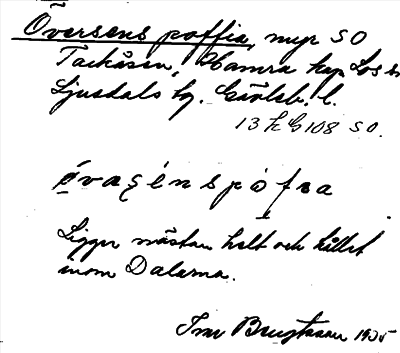 Översens poffia, myr SO
Tackåsen, Hamra kap Los s
Ljusdals tg. Gävleb. l.
13 k G 108 SO.
Ligger nästan helt och hållet
inom Dalarna.
Ivar Bengtsson 1935